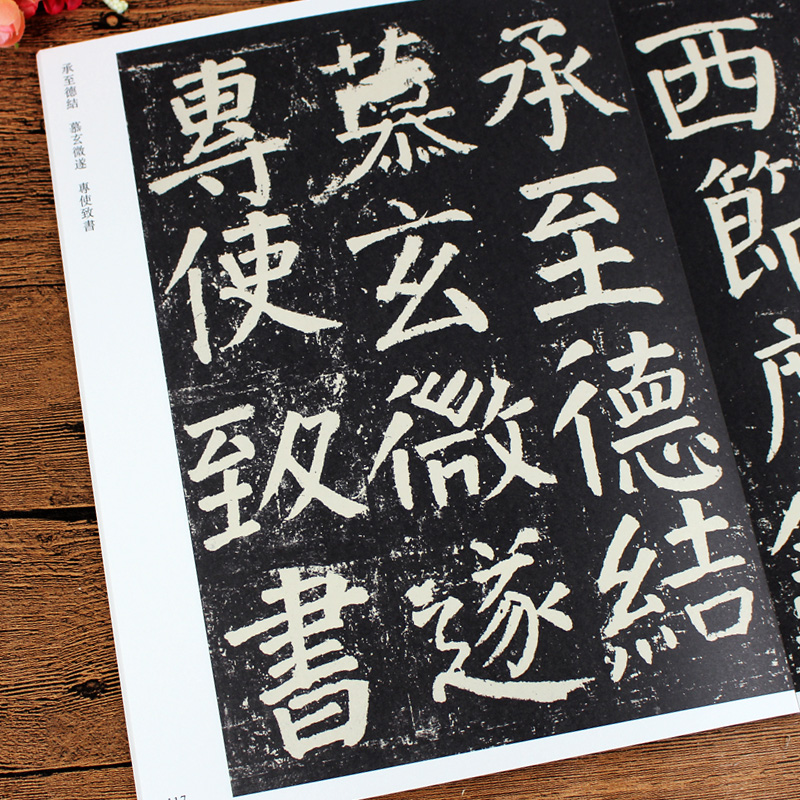 西節度
承至德結
慕玄微遂
專使致書
承至德結　慕玄微遂　專使致書
117